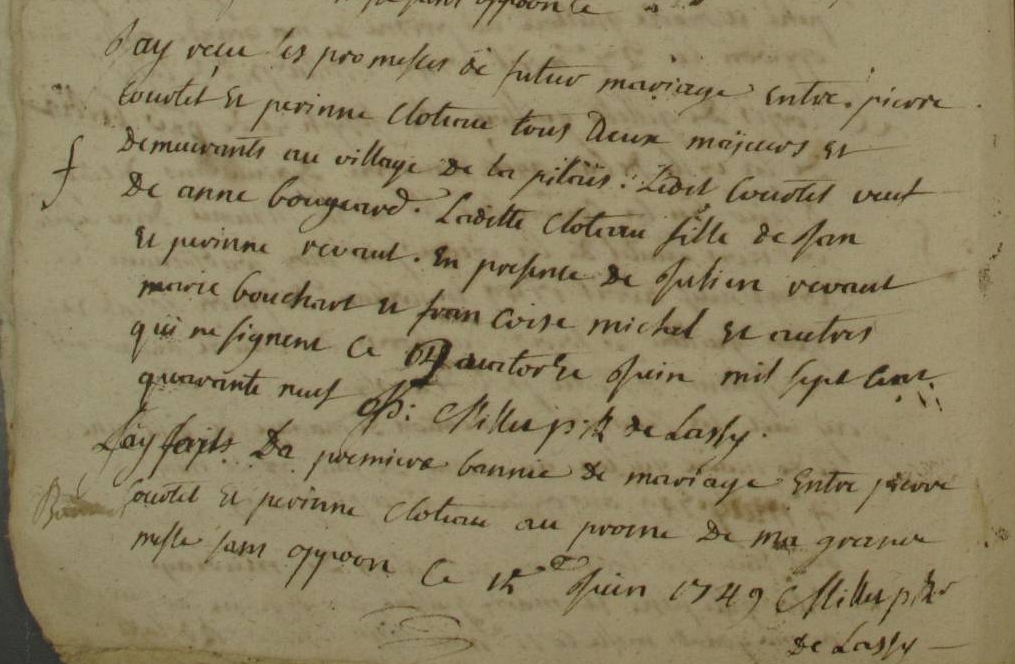 oppoon ce
Jay receu les promesses de futur mariage Entre pierre
Courtel Et perinne Cloteau tous Deux majeurs Et
Demeurants au village de la pilais : Ledit Courtel veuf
De anne bougeard. Laditte Cloteau fille de Jan
Et perinne revaut. En presence de Julien revaut
marie bouchart et francoise michel Et autres
qui ne signent Ce Quatorze Juin mil sept Cent
quarante neuf P: Millet p.tr de Lassy.
J'ay faits La premiere bannie De mariage Entre pierre
Courtel Et perinne Cloteau au prosne De ma grande
messe sans oppoon Ce 15e Juin 1749 Millet ptr
de Lassy